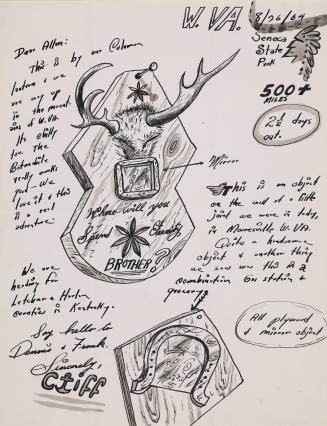 W. VA. 8/26/64
Seneca
State
Park
500+
MILES
2½ days
out.
Dear Allen:
This is by our Coleman
lantern & we
are way up
in the mount-
ains of W. VA
Its chilly
but the
really works
good — We
love it & this
is a real
adventure.
We are
heading for
Letcher & Harlan
counties in Kentucky.
Say hello to
Dennis & Frank.
Sincerely,
Cliff
Where will you
Spend Eternity
BROTHER?
Mirror
This is an object
on the wall of a little
joint we were in today,
in W. VA.
Quite a handsome
object & another thing
we saw was this in a
combination Gas station &
grocery
All plywood
& mirror object